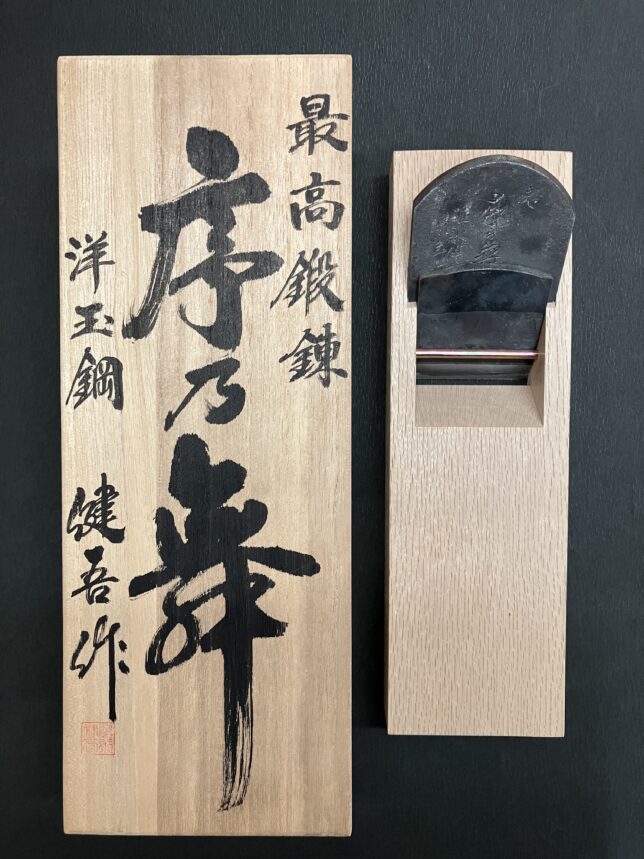 最高鍛錬
序乃舞
洋玉鋼 健吾作